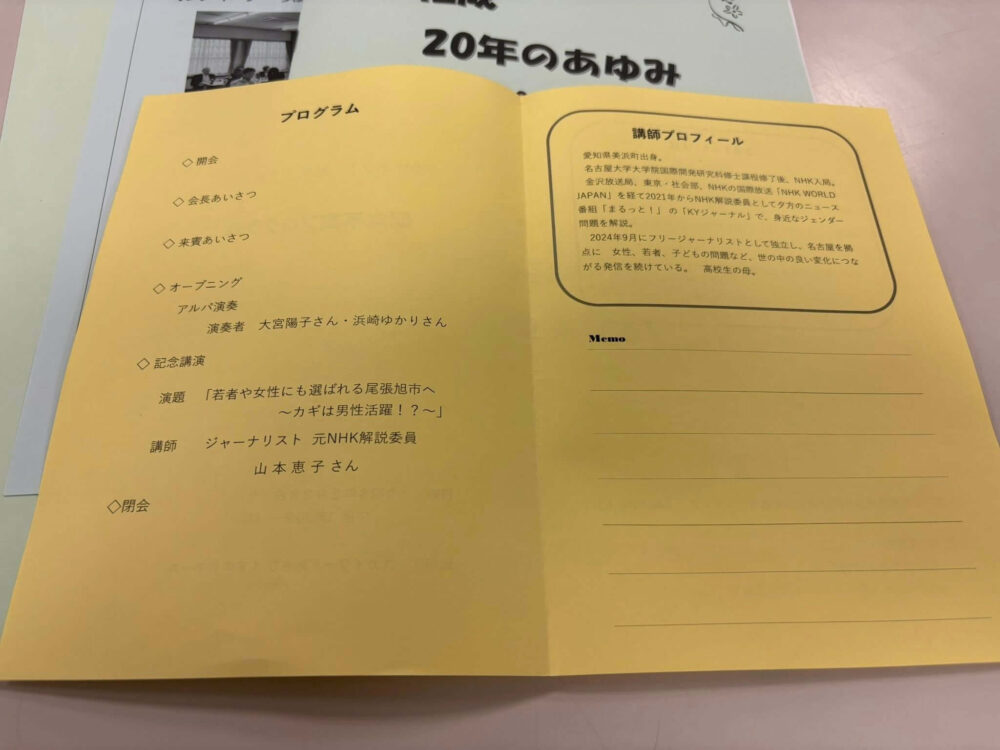 20年のあゆみ
プログラム
◇ 開会
◇ 会長あいさつ
◇ 来賓あいさつ
◇ オープニング
アルパ演奏
演奏者 大宮陽子さん・浜崎ゆかりさん
◇ 記念講演
演題 「若者や女性にも選ばれる尾張旭市へ
～カギは男性活躍！？～」
講師 ジャーナリスト 元NHK解説委員
山本恵子さん
◇閉会
講師プロフィール
愛知県美浜町出身。
名古屋大学大学院国際開発研究科修士課程修了後、NHK入局。
金沢放送局、東京・社会部、NHKの国際放送「NHK WORLD
JAPAN」を経て2021年からNHK解説委員として夕方のニュース
番組「まるっと！」の「KYジャーナル」で、身近なジェンダー
問題を解説。
2024年9月にフリージャーナリストとして独立し、名古屋を拠
点に 女性、若者、子どもの問題など、世の中の良い変化につな
がる発信を続けている。 高校生の母。
Memo